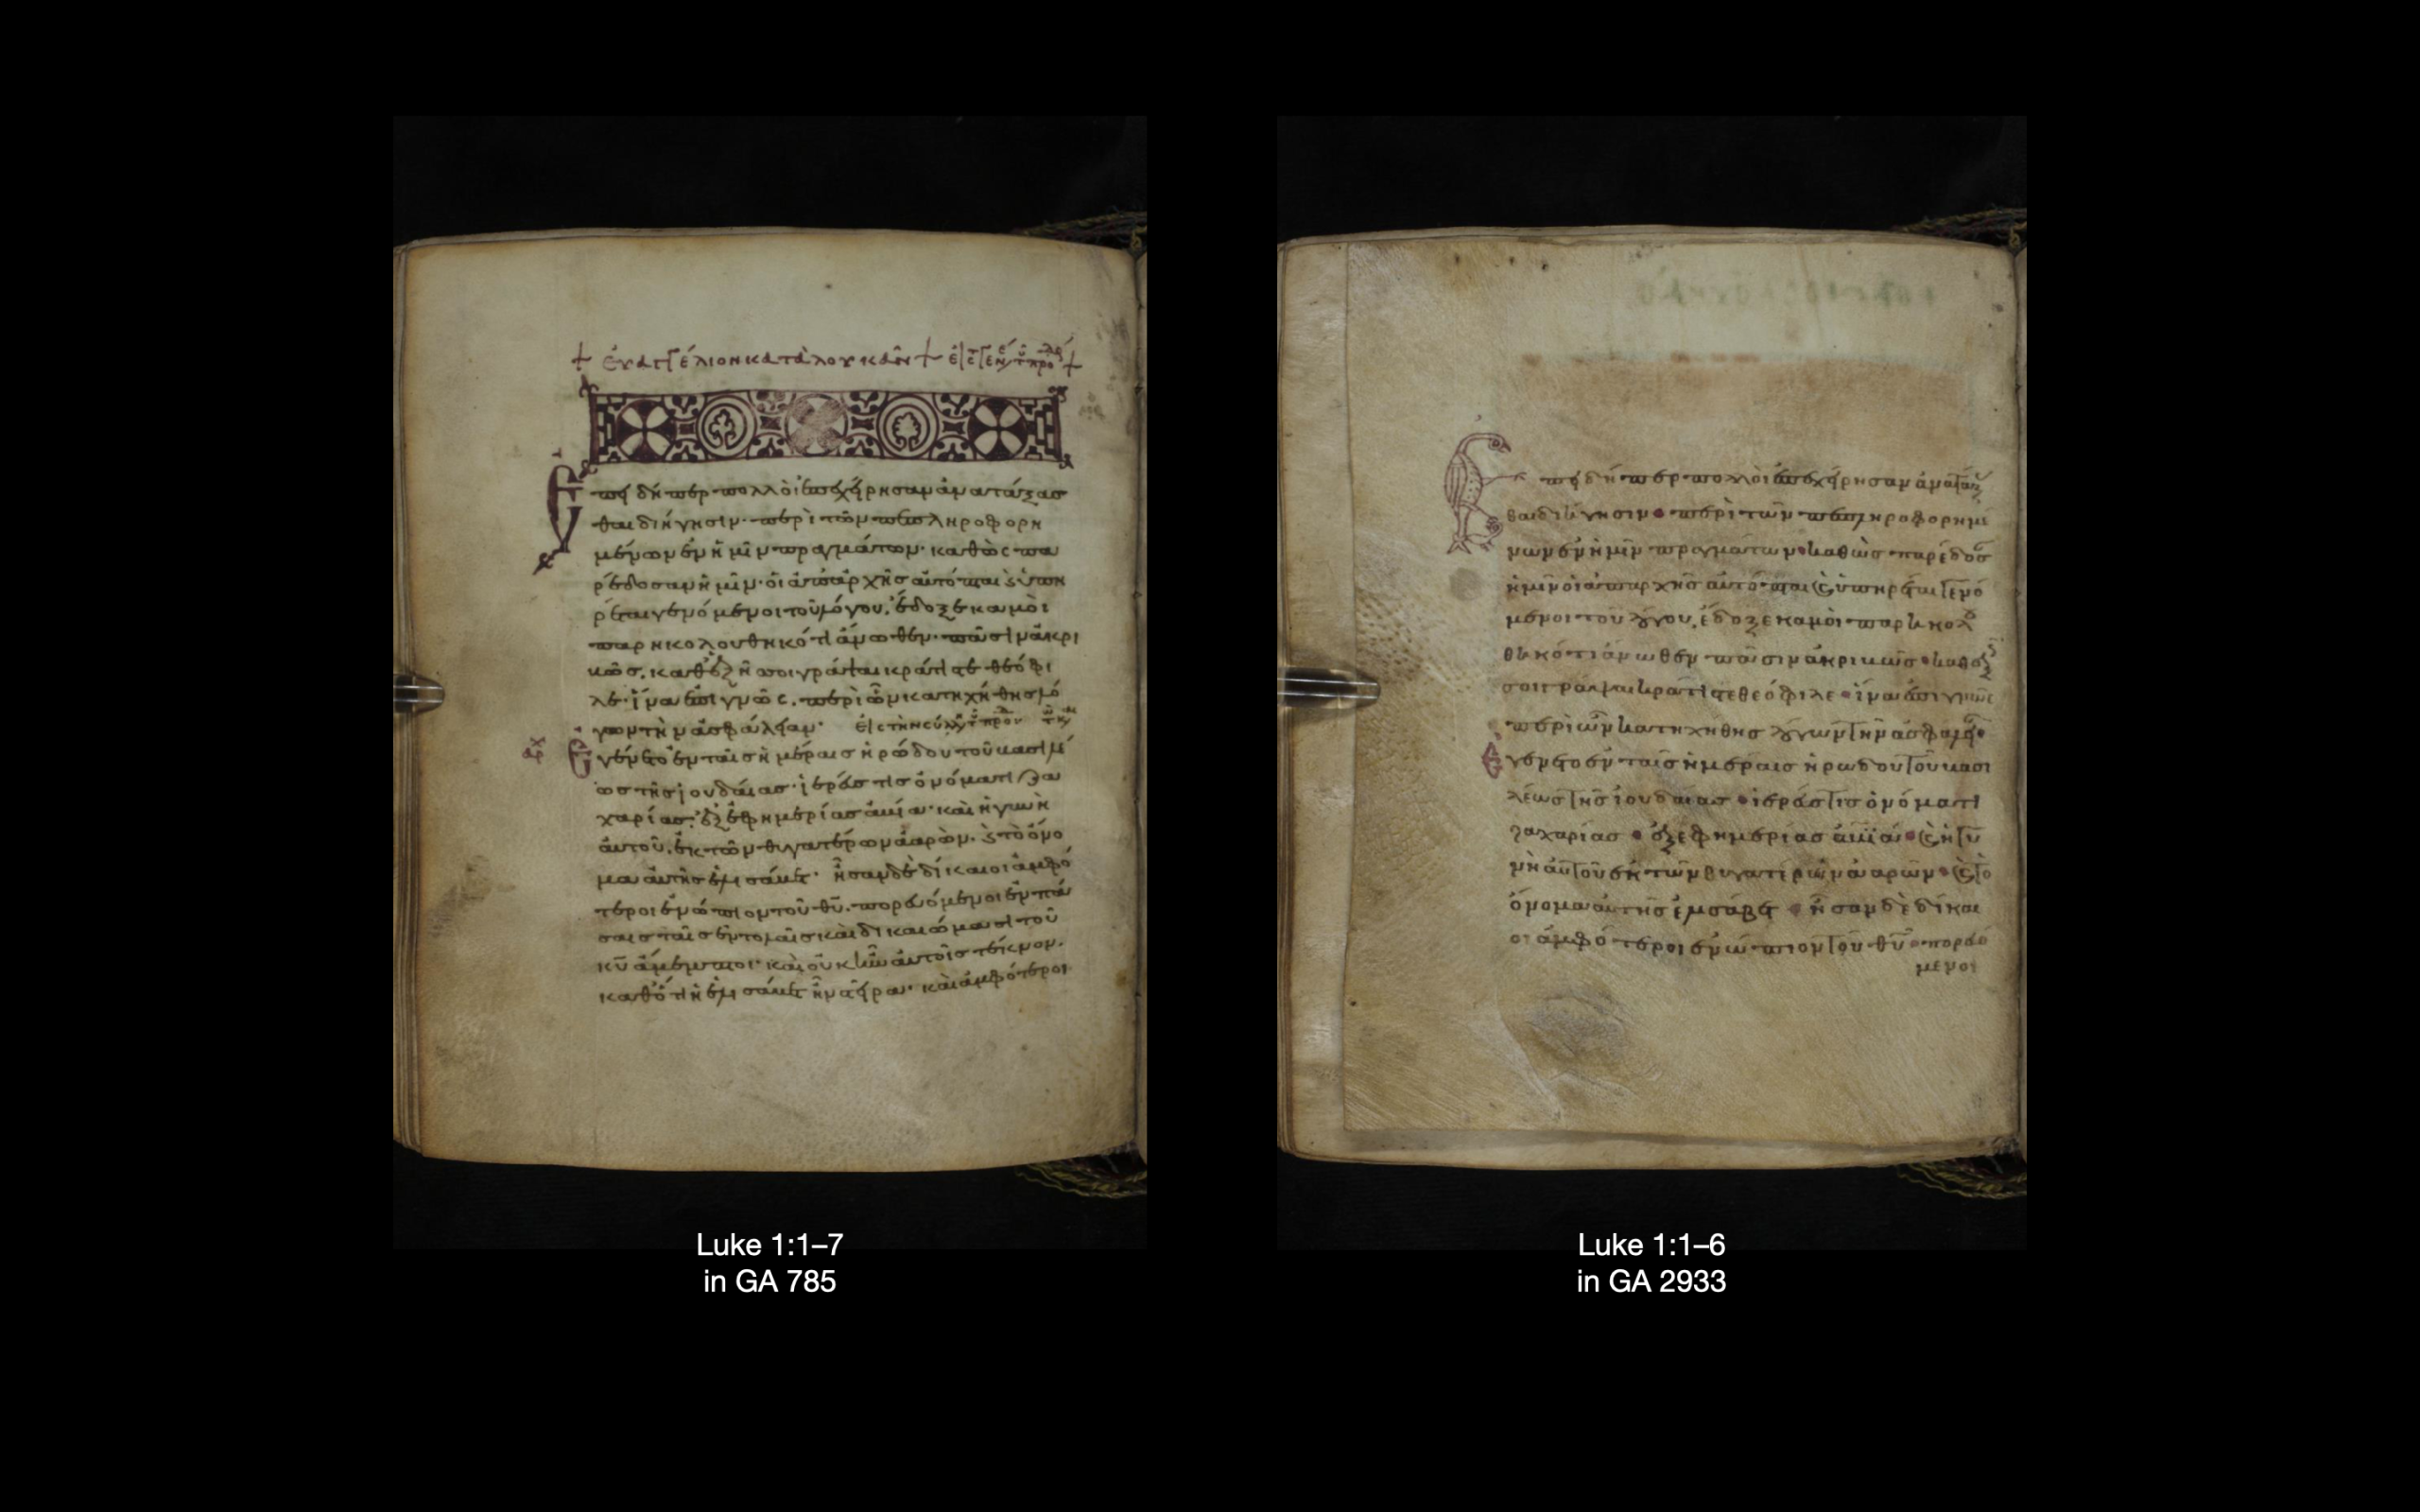 + ἐυαγγέλιον κατὰ λουκᾶν +
Ἐπειδήπερ πολλοὶ ἐπεχείρησαν ἀνατάξασ
θαι διήγησιν· περὶ τῶν πεπληροφορη
μένων ἐν ἡμῖν πραγμάτων· καθὼς πα
ρέδοσαν ἡμῖν· οἱ ἀπαρχῆς αὐτόπται ϗ ὑπη
ρέται γενόμενοι τοῦ λόγου, ἔδοξε καμοὶ
παρηκολουθηκότι ἄνωθεν· πᾶσιν ἀκρι
βῶς, καθεξῆς σοι γράψαι κράτιστε θεόφι
λε· ἵνα ἐπιγνῶς, περὶ ὧν κατηχήθης λό
γων τὴν ἀσφάλειαν·
Ἐγένετο ἐν ταῖς ἡμέραις ἡρώδου τοῦ βασιλέ
ως τῆς ἰουδαίας· ἱερεύς τις ὀνόματι ζα
χαρίας· ἐξ ἐφημερίας ἀβιά· καὶ ἡ γυνὴ
αὐτοῦ, ἐκ τῶν θυγατέρων ἀαρών· ϗ τὸ ὄνο
μα αὐτῆς ἐλισάβετ· ἦσαν δὲ δίκαιοι ἀμφό
τεροι ἐνώπιον τοῦ θ̅υ̅· πορευόμενοι ἐν πά
σαις ταῖς ἐντολαῖς καὶ δικαιώμασι τοῦ
κ̅υ̅ ἄμεμπτοι· καὶ οὐκ ἦν αὐτοῖς τέκνον·
καθότι ἡ ἐλισάβετ ἦν στεῖρα· καὶ ἀμφότεροι
Luke 1:1–7
in GA 785
Ἐπειδήπερ πολλοὶ ἐπεχείρησαν ἀνατάξασ
θαι διήγησιν· περὶ τῶν πεπληροφορημέ
νων ἐν ἡμῖν πραγμάτων· καθὼς παρέδοσαν
ἡμῖν οἱ ἀπαρχῆς αὐτόπται ϗ ὑπηρέται γενό
μενοι τοῦ λόγου, ἔδοξε καμοὶ παρηκολου
θηκότι ἄνωθεν πᾶσιν ἀκριβῶς· καθεξῆς
σοι γράψαι κράτιστε θεόφιλε· ἵνα ἐπιγνῶς
περὶ ὧν κατηχήθης λόγων τὴν ἀσφάλειαν·
Ἐγένετο ἐν ταῖς ἡμέραις ἡρώδου τοῦ βασι
λέως τῆς ἰουδαίας· ἱερεύς τις ὀνόματι
ζαχαρίας· ἐξ ἐφημερίας ἀβϊά· ϗ ἡ γυ
νὴ αὐτοῦ ἐκ τῶν θυγατέρων ἀαρών· ϗ τὸ
ὄνομα αὐτῆς ἐλισάβετ· ἦσαν δὲ δίκαι
οι ἀμφότεροι ἐνώπιον τοῦ θ̅υ̅· πορευό
μενοι
Luke 1:1–6
in GA 2933